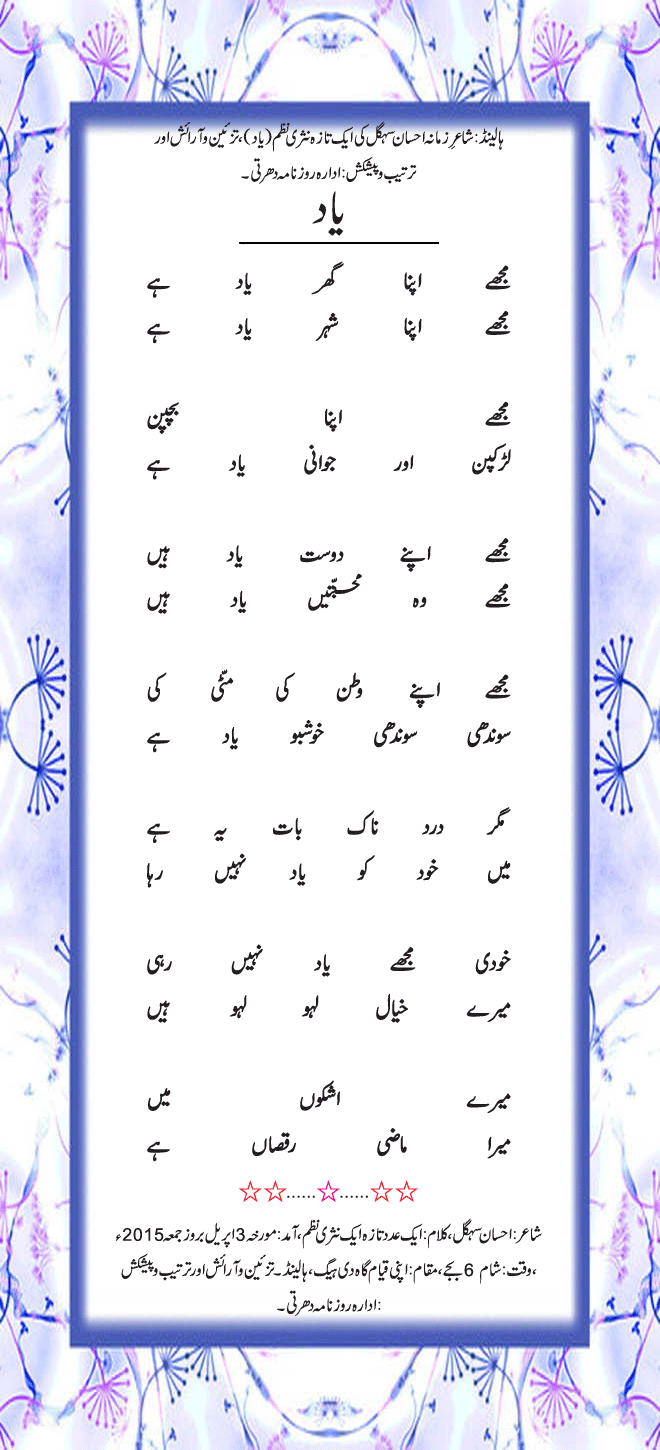 ہالینڈ:شاعرِ زمانہ احسان سہگل کی ایک تازہ نثری نظم (یاد)،تزئین و آرائش اور
ترتیب و پیشکش:ادارہ روزنامہ دھرتی۔
یاد
مجھے اپنا گھر یاد ہے
مجھے اپنا شہر یاد ہے
مجھے اپنا بچپن
لڑکپن اور جوانی یاد ہے
مجھے اپنے دوست یاد ہیں
مجھے وہ محبتّیں یاد ہیں
مجھے اپنے وطن کی مٹّی کی
سوندھی سوندھی خوشبو یاد ہے
مگر درد ناک بات یہ ہے
میں خود کو یاد نہیں رہا
خودی مجھے یاد نہیں رہی
میرے خیال لہو لہو ہیں
میرے اشکوں میں
میرا ماضی رقصاں ہے
☆☆......☆......☆☆
شاعر:احسان سہگل،کلام:ایک عدد تازہ ایک نثری نظم،آمد:مورخہ3اپریل بروز جمعہ2015ء
،وقت:شام 6بجے،مقام:اپنی قیام گاہ دی ہیگ،ہالینڈ۔تزئین و آرائش اور ترتیب و پیشکش
:ادارہ روزنامہ دھرتی۔